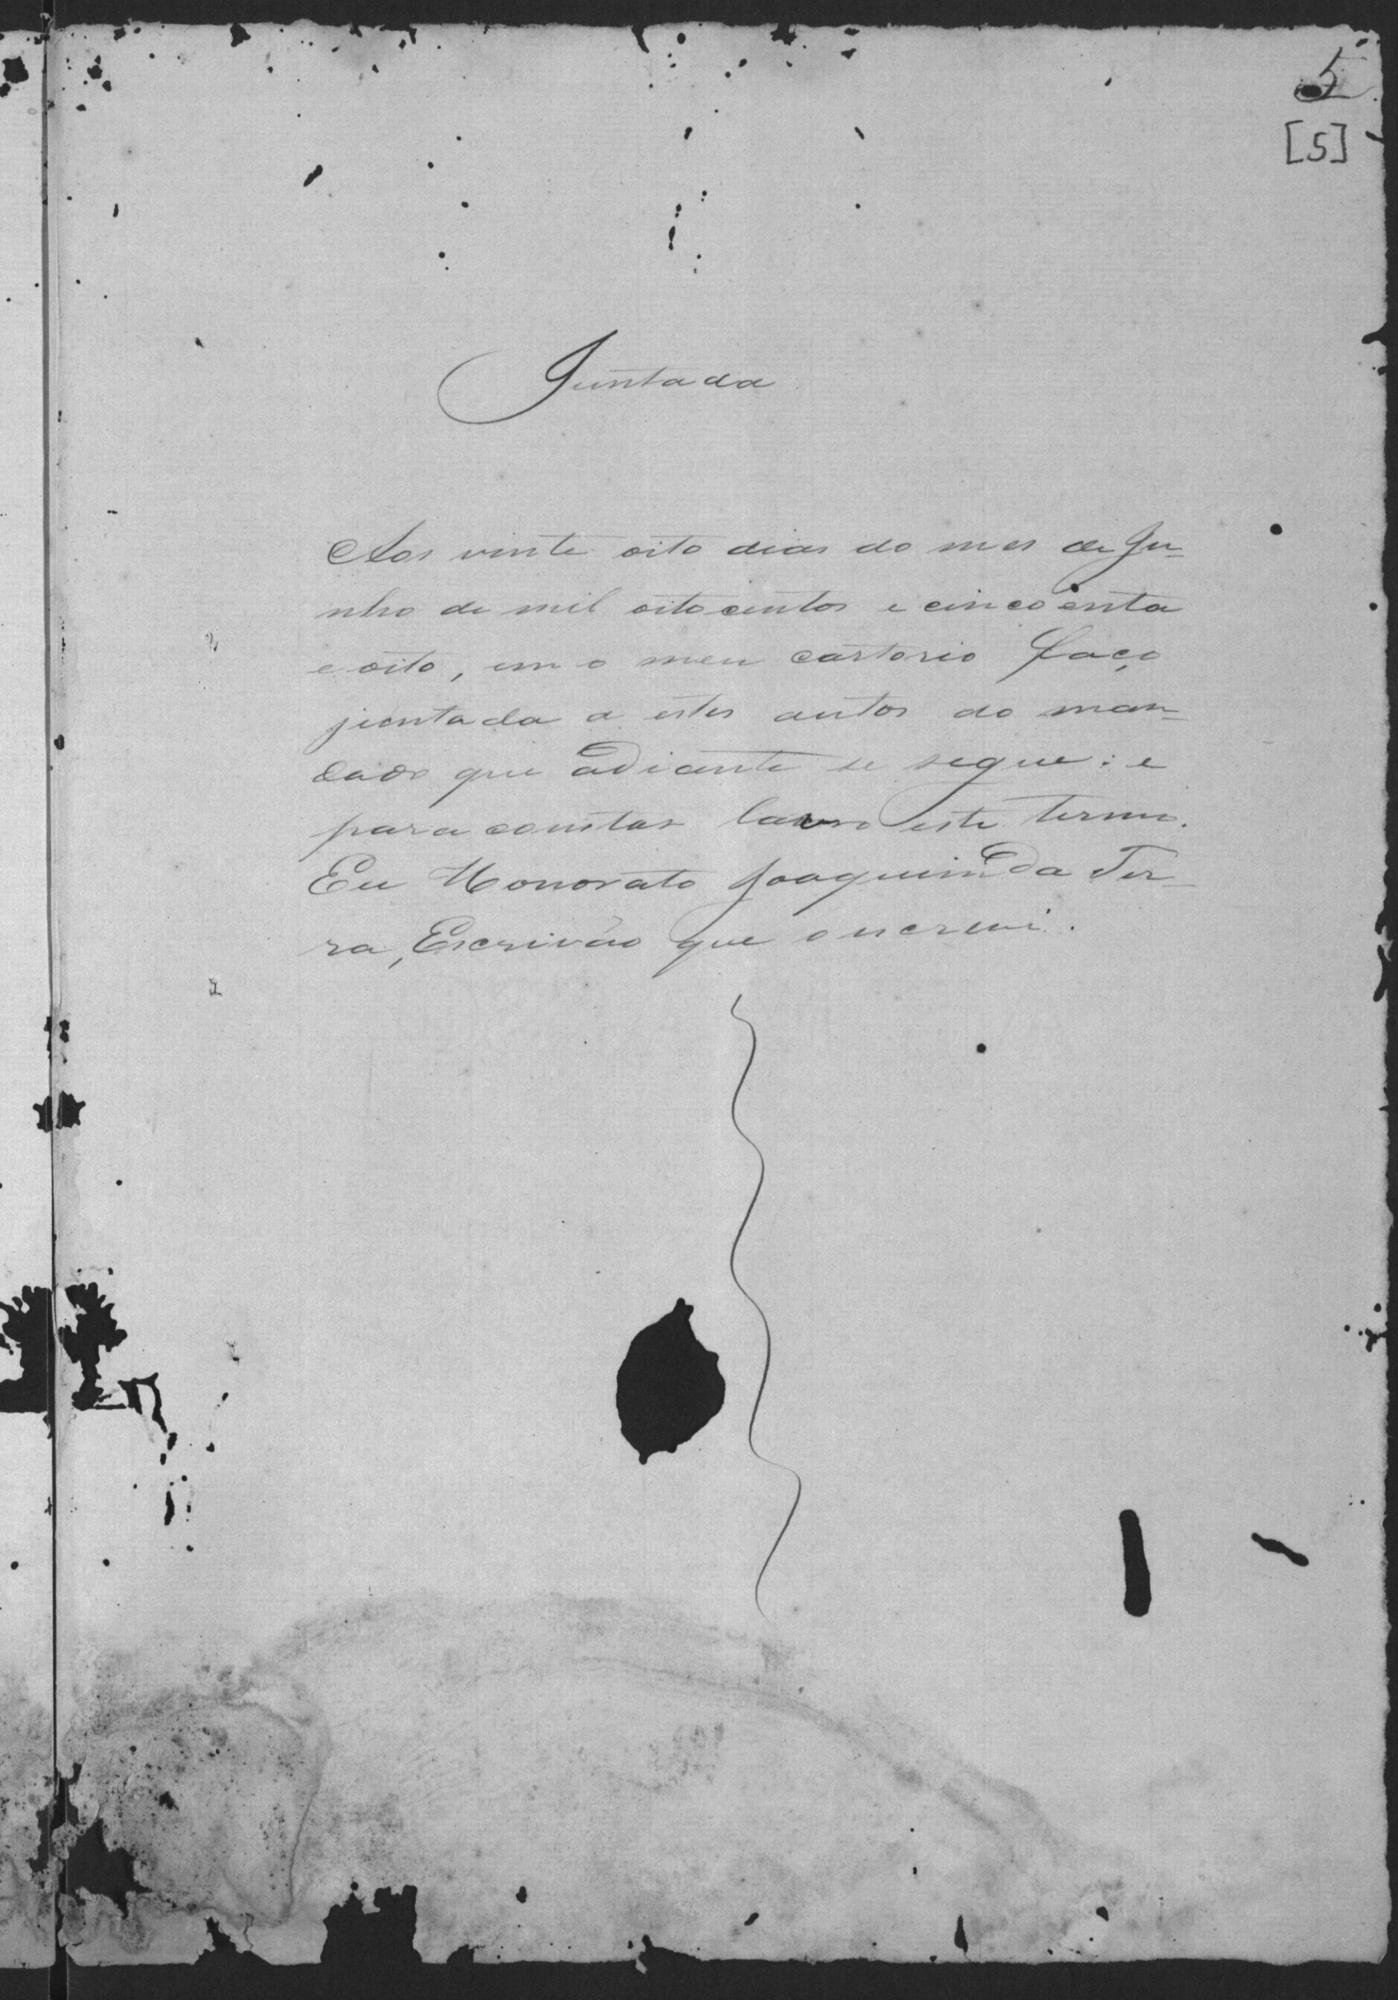 5
[5]
Juntada
Aos vinte oito dias do mes de Ju-
nho de mil oito centos e cincoenta
e oito, em o meu cartorio faço
juntada a estes autos do man-
dado que adiante se segue: e
para constar lavro este termo.
Eu Honorato Joaquim da Ter-
ra, Escrivão que o escrevi.